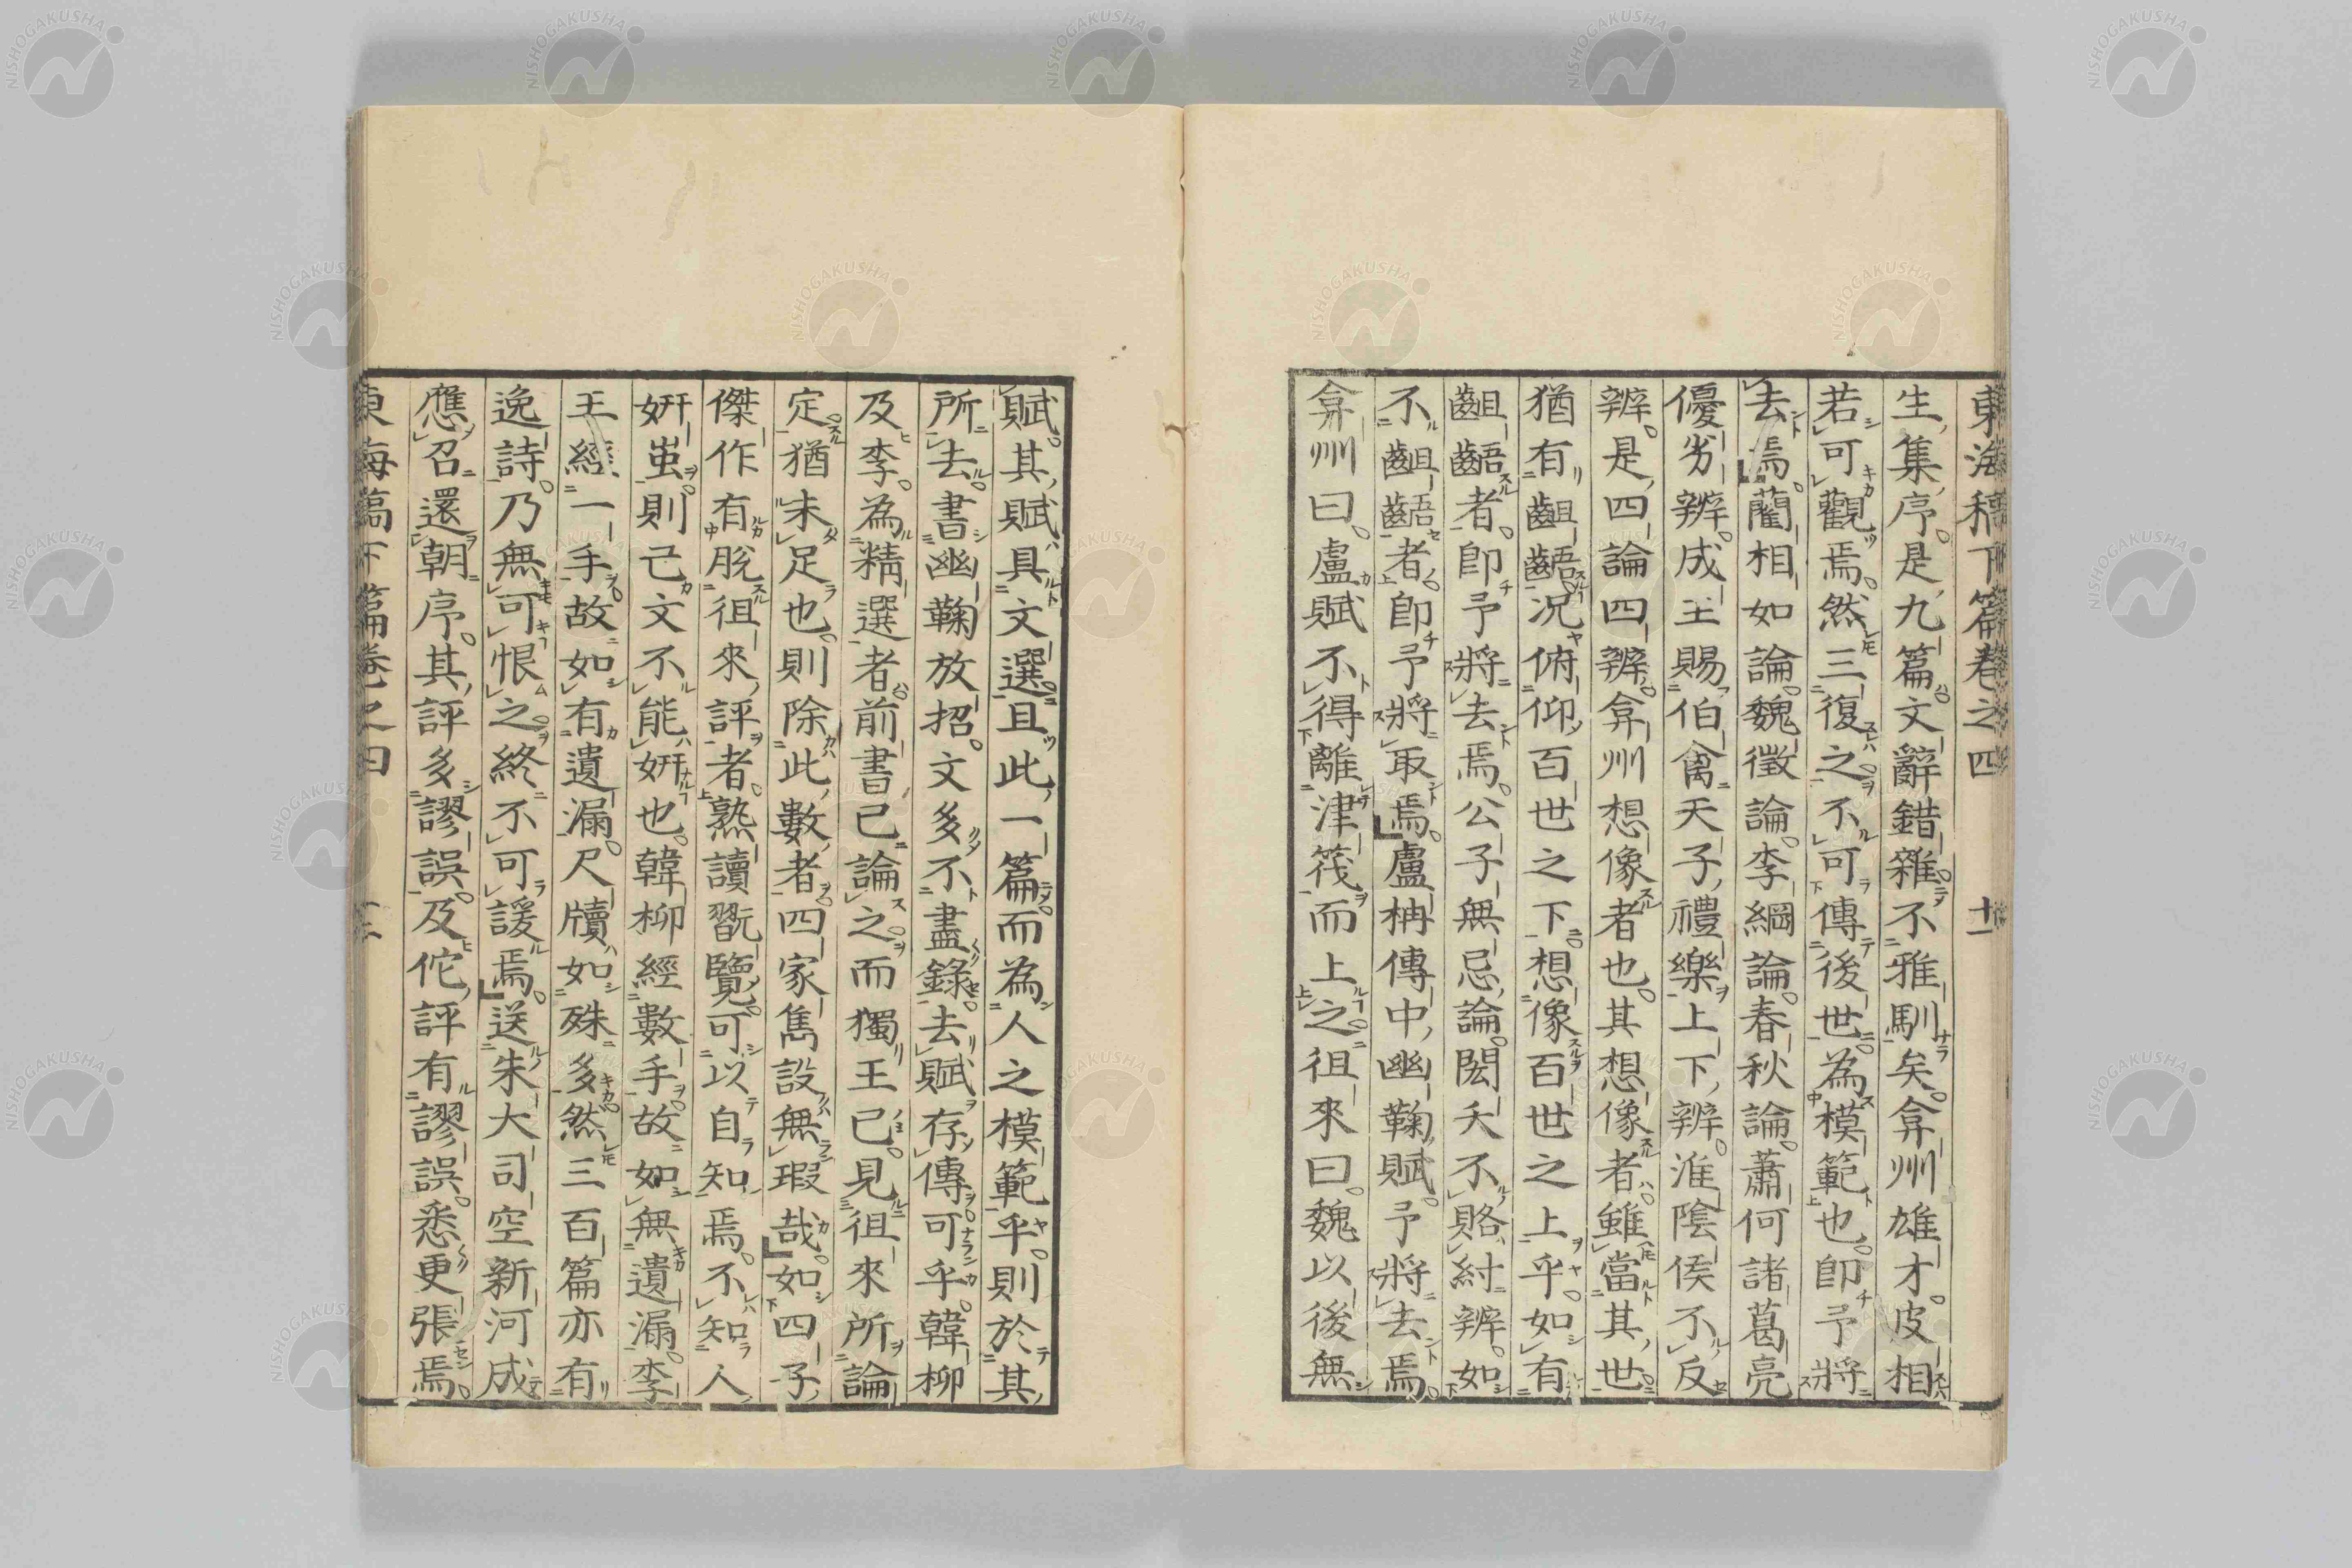 東海稿下篇卷之四 十一
生集序。是九篇。文辭錯雜。不雅馴矣。弇州雄才。皮相
若可觀焉。然三復之。不可傳後世。為模範也。卽予將
去焉。藺相如論。魏徵論。李綱論。春秋論。蕭何諸葛亮
優劣辨。成王賜伯禽天子禮樂上下辨。淮陰侯不反
辨。是四論四辨。弇州想像者也。其想像者。雖當其世。
猶有齟齬。況俯仰百世之下。想像百世之上乎。如有
齟齬者。卽予將去焉。公子無忌論。閎夭不賂紂辨。如
不齟齬者。卽予將取焉。盧柟傳中。幽鞠賦。予將去焉。
弇州曰。盧賦不得離津筏而上之。徂來曰。魏以後無
賦。其賦具文選。且此一篇而為人之模範乎。則於其
所去。書幽鞠放招。文多不盡錄。去賦存傳。可乎。韓柳
及李。為精選者。前書已論之。而獨王已。見徂來所論
定。猶未足也。則除此數者。四家雋設無瑕哉。如四子
傑作。有脫徂來評者。熟讀翫覽。可以自知焉。不知人
姸蚩。則己文不能姸也。韓柳經數手。故如無遺漏。李
王經一手。故如有遺漏。尺牘如殊多。然三百篇亦有
逸詩。乃無可恨之。終不可諼焉。送朱大司空新河成
應召還朝序。其評多謬誤。及佗評有謬誤。悉更張焉。
東海稿下篇卷之四